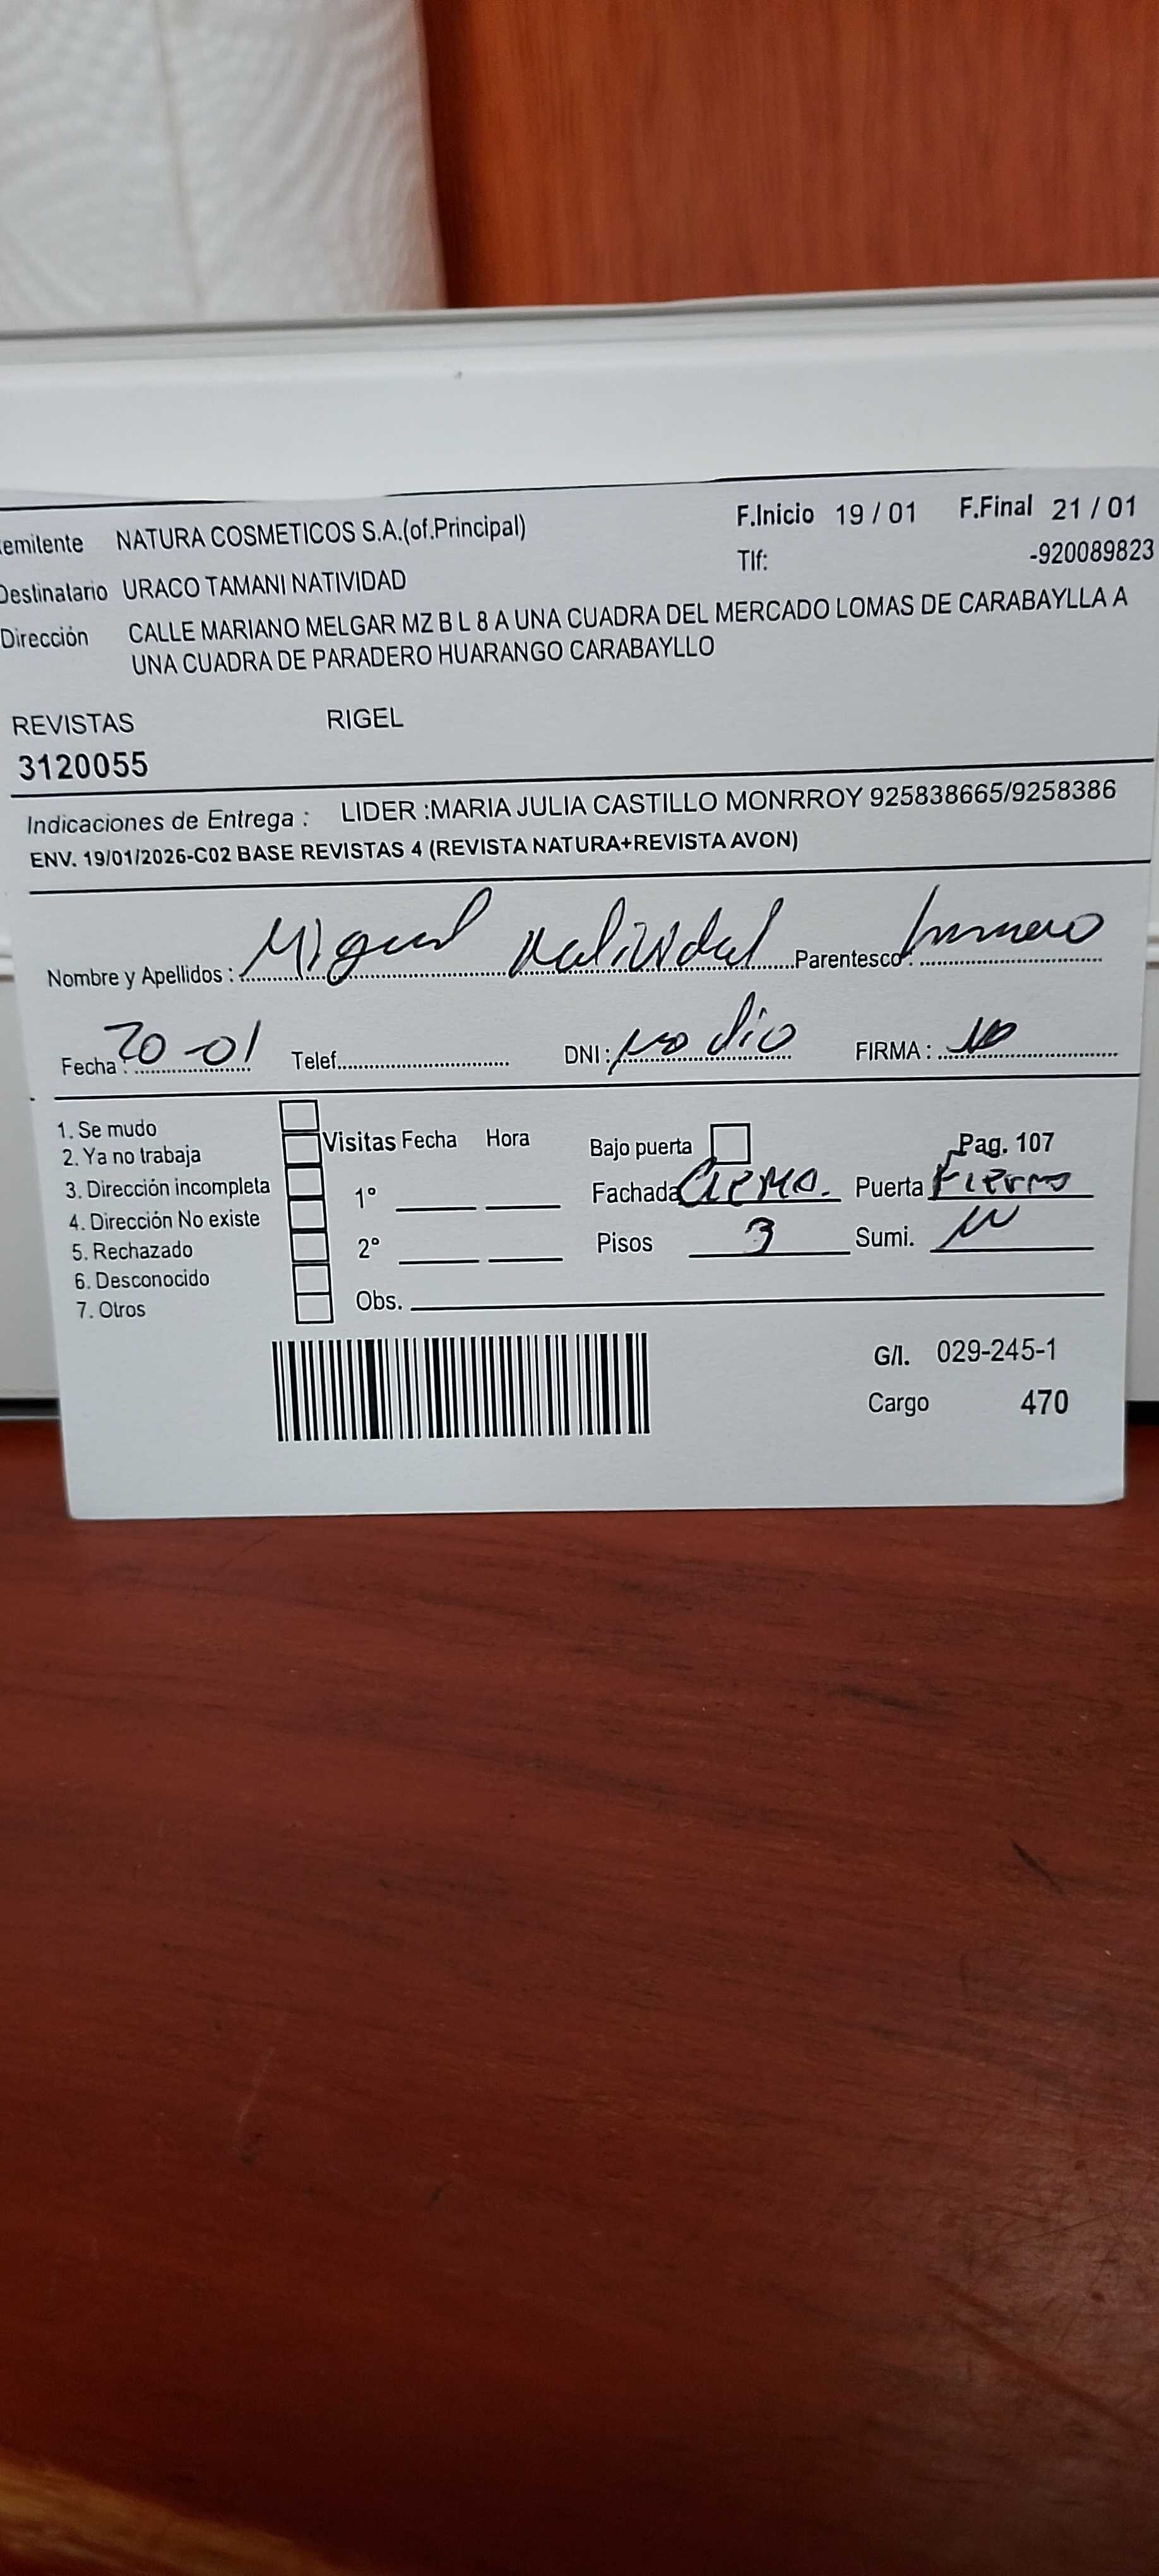 emitente NATURA COSMETICOS S.A.(of.Principal) F.Inicio 19 / 01 F.Final 21 / 01
Destinatario URACO TAMANI NATIVIDAD Tlf: -920089823
Dirección CALLE MARIANO MELGAR MZ B L 8 A UNA CUADRA DEL MERCADO LOMAS DE CARABAYLLA A
UNA CUADRA DE PARADERO HUARANGO CARABAYLLO
REVISTAS RIGEL
3120055
Indicaciones de Entrega : LIDER :MARIA JULIA CASTILLO MONRROY 925838665/9258386
ENV. 19/01/2026-C02 BASE REVISTAS 4 (REVISTA NATURA+REVISTA AVON)
Nombre y Apellidos : Miguel Natividad Parentesco :
Fecha : 20-01 Telef. DNI : no dio FIRMA :
1. Se mudo
2. Ya no trabaja Visitas Fecha Hora Bajo puerta Pag. 107
3. Dirección incompleta 1° Fachada Crema. Puerta Fierro
4. Dirección No existe
5. Rechazado 2° Pisos 3 Sumi.
6. Desconocido
7. Otros Obs.
G/l. 029-245-1
Cargo 470